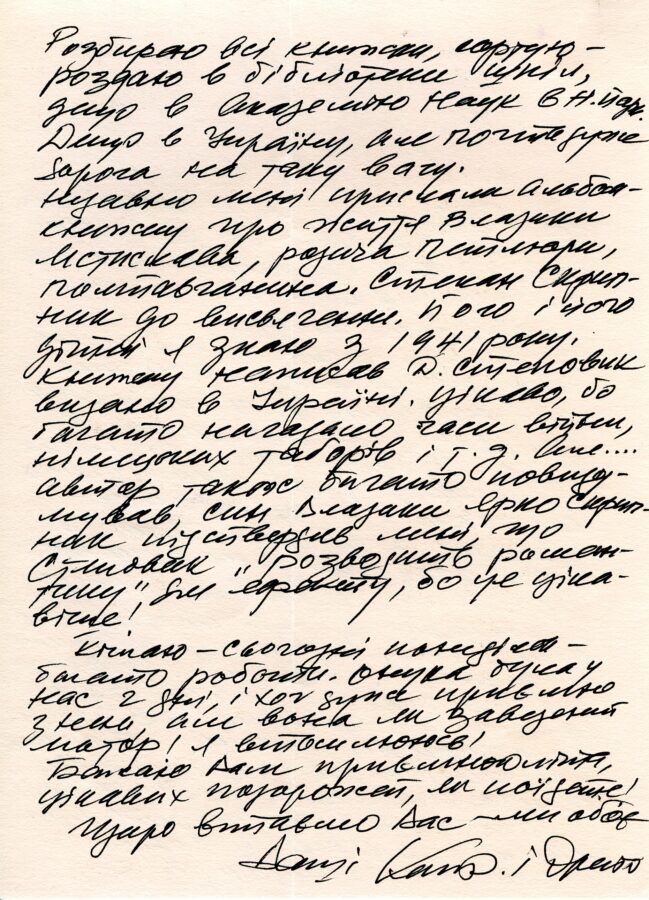 Розбираю всі книжки, сортую –
роздаю в бібліотеки шкіл,
дещо в Академію Наук в Н. Йор.
Дещо в Україну, але пошта дуже
дорога на таку вагу.
Недавно мені прислали Альбом-
книжку про життя Владики
Мстислава, родича Петлюри,
полтавчанина. Степан Скрип-
ник до висвячення. Його і його
дітей я знаю з 1941 року.
Книжку написав Д. Степовик
видано в Україні. Цікаво, бо
багато нагадано часи війни,
німецьких таборів і т. д. Але....
автор також багато повиду-
мував, син Владики Ярко Скрип-
ник підствердив мені, що
Степовик „розводить роман-
тику" для ефекту, бо це ціка-
віше!
Кінчаю – сьогодні понеділок –
багато роботи. Онука була у
нас 2 дні, і хоч дуже приємно
з нею, але вона як заведений
мотор! Я втомилююсь!
Бажаю Вам приємного літа,
цікавих подорожей, як поїдете!
Щиро вітаємо Вас – ми обоє
Ваші і